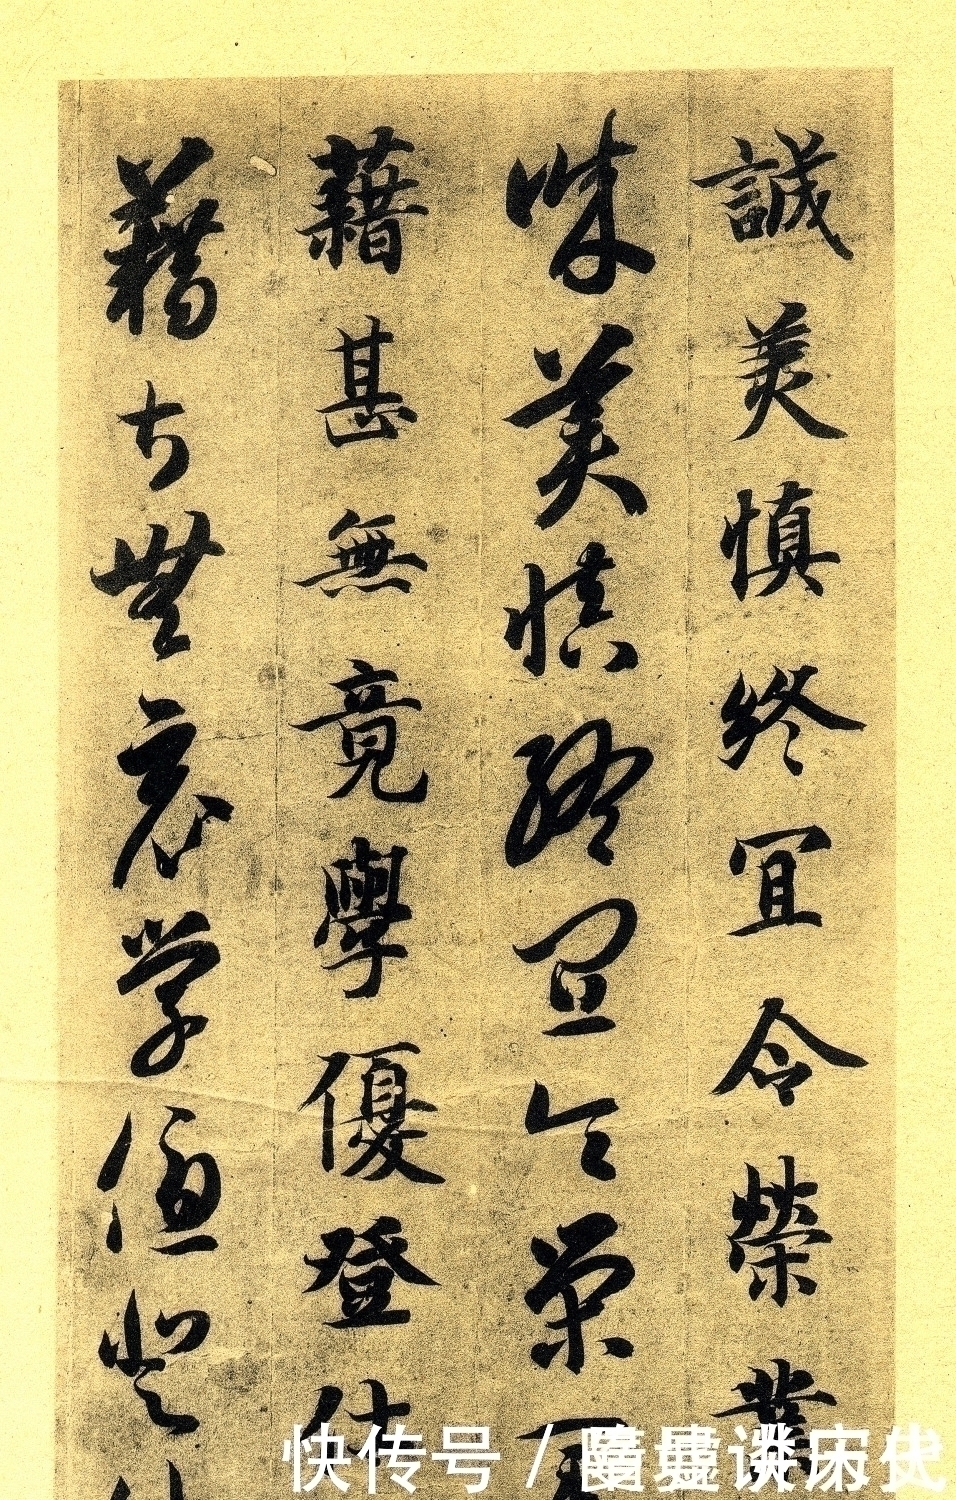 誠美慎終宜令榮業
誠美慎終宜令榮
藉甚無竟學優登仕
藉甚無竟學優登
快传号 /